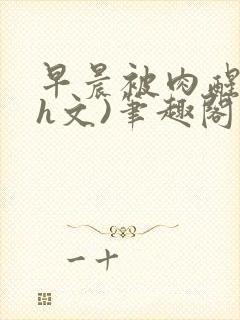 早晨被肉醒
h文)笔趣阁
一十